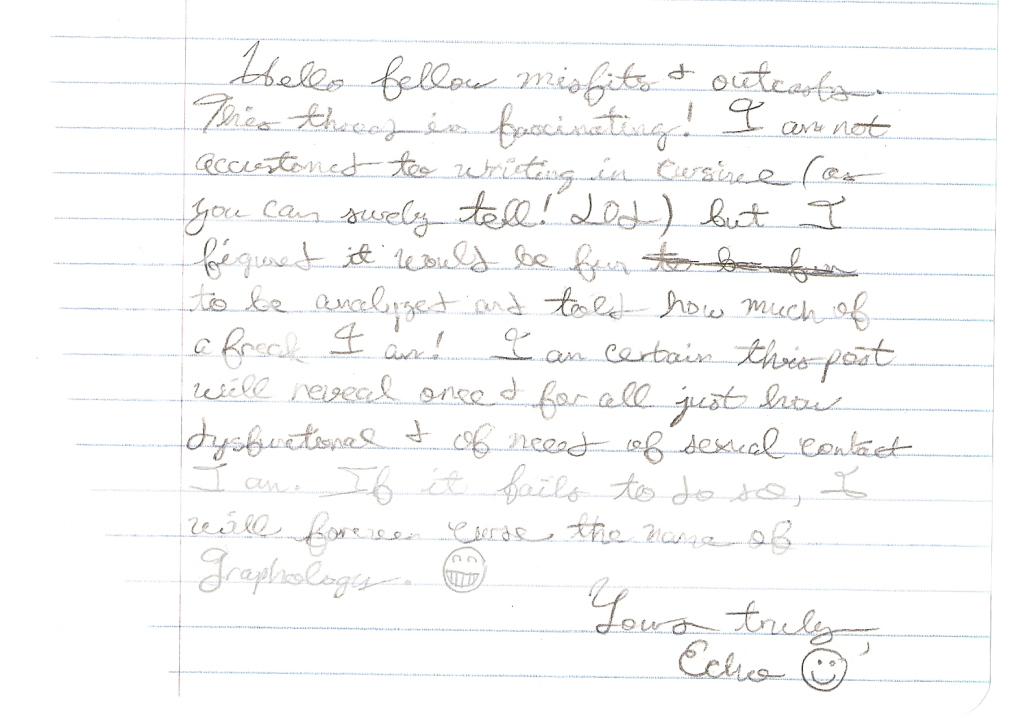 Hello fellow misfits & outcasts.
This thread is fascinating! I am not
accustomed too writing in cursive (as
you can surely tell! LOL) but I
figured it would be fun to be fun
to be analyzed and told how much of
a freak I am! I am certain this post
will reveal once & for all just how
dysfuctional & of need of sexual contact
I am. If it fails to do so, I
will forever curse the name of
Graphology.
Yours truly,
Echo